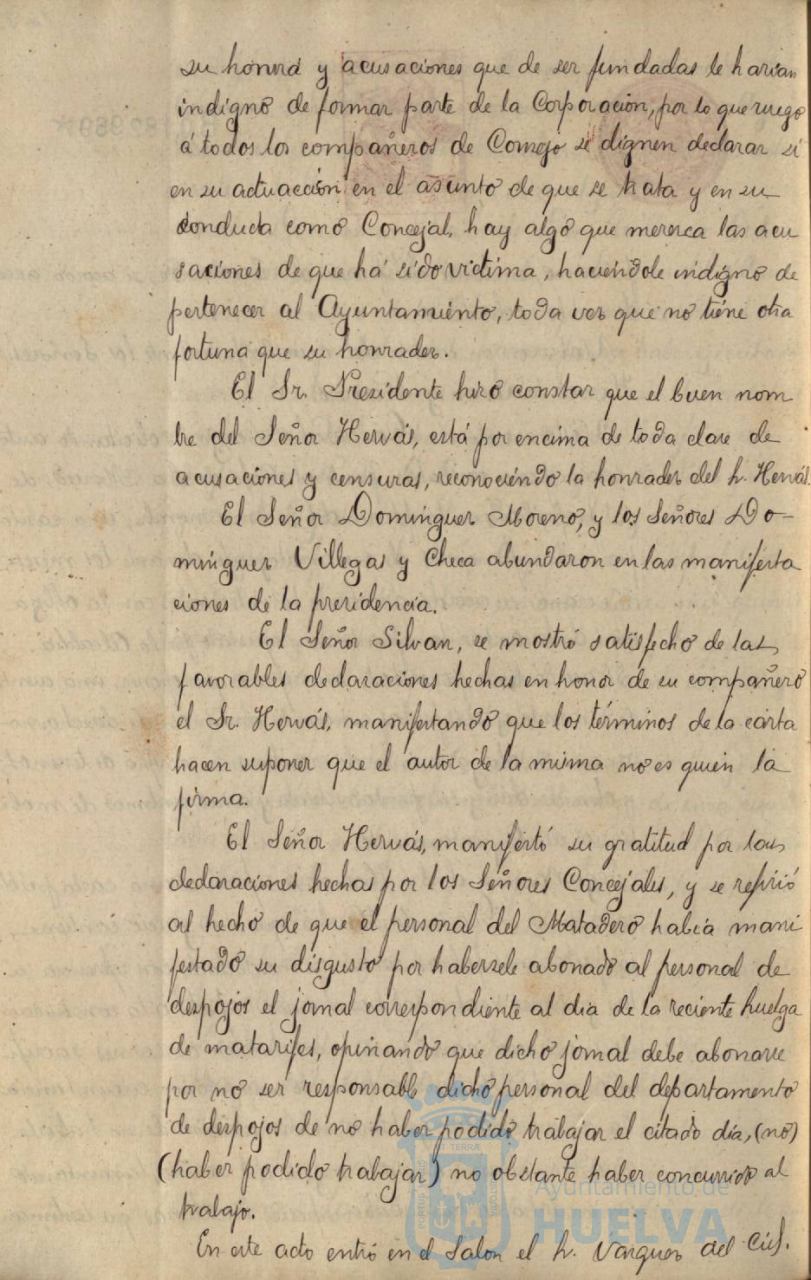 su honra y acusaciones que de ser fundadas le harian
indigno de formar parte de la Corporación, por lo que ruego
á todos los compañeros de Consejo se dignen declarar si
en su actuacción en el asunto de que se trata y en su
conducta como Concejal, hay algo que merezca las acu
saciones de que há sido victima, haciéndole indigno de
pertenecer al Ayuntamiento, toda vez que no tiene otra
fortuna que su honradez.
El Sr. Presidente hizo constar que el buen nom
bre del Señor Hervás, está por encima de toda clase de
acusaciones y censuras, reconociéndo la honradez del Sr. Hervás.
El Señor Domínguez Moreno, y los Señores Do-
mínguez Villegas y Checa abundaron en las manifesta
ciones de la presidencia.
El Señor Silvan, se mostró satisfecho de las
favorables declaraciones hechas en honor de su compañero
el Sr. Hervás, manifestando que los términos de la carta
hacen suponer que el autor de la misma no es quien la
firma.
El Señor Hervás, manifestó su gratitud por las
declaraciones hechas por los Señores Concejales, y se refirió
al hecho de que el personal del Matadero había mani
festado su disgusto por habersele abonado al personal de
despojos el jornal correspondiente al dia de la reciente huelga
de matarifes, opinando que dicho jornal debe abonarse
por no ser responsable dicho personal del departamento
de despojos de no haber podido trabajar el citado día, (no)
(haber podido trabajar) no obstante haber concurrido al
trabajo.
En este acto entró en el Salon el Sr. Vazquez del Cid.
Ayuntamiento de
HUELVA